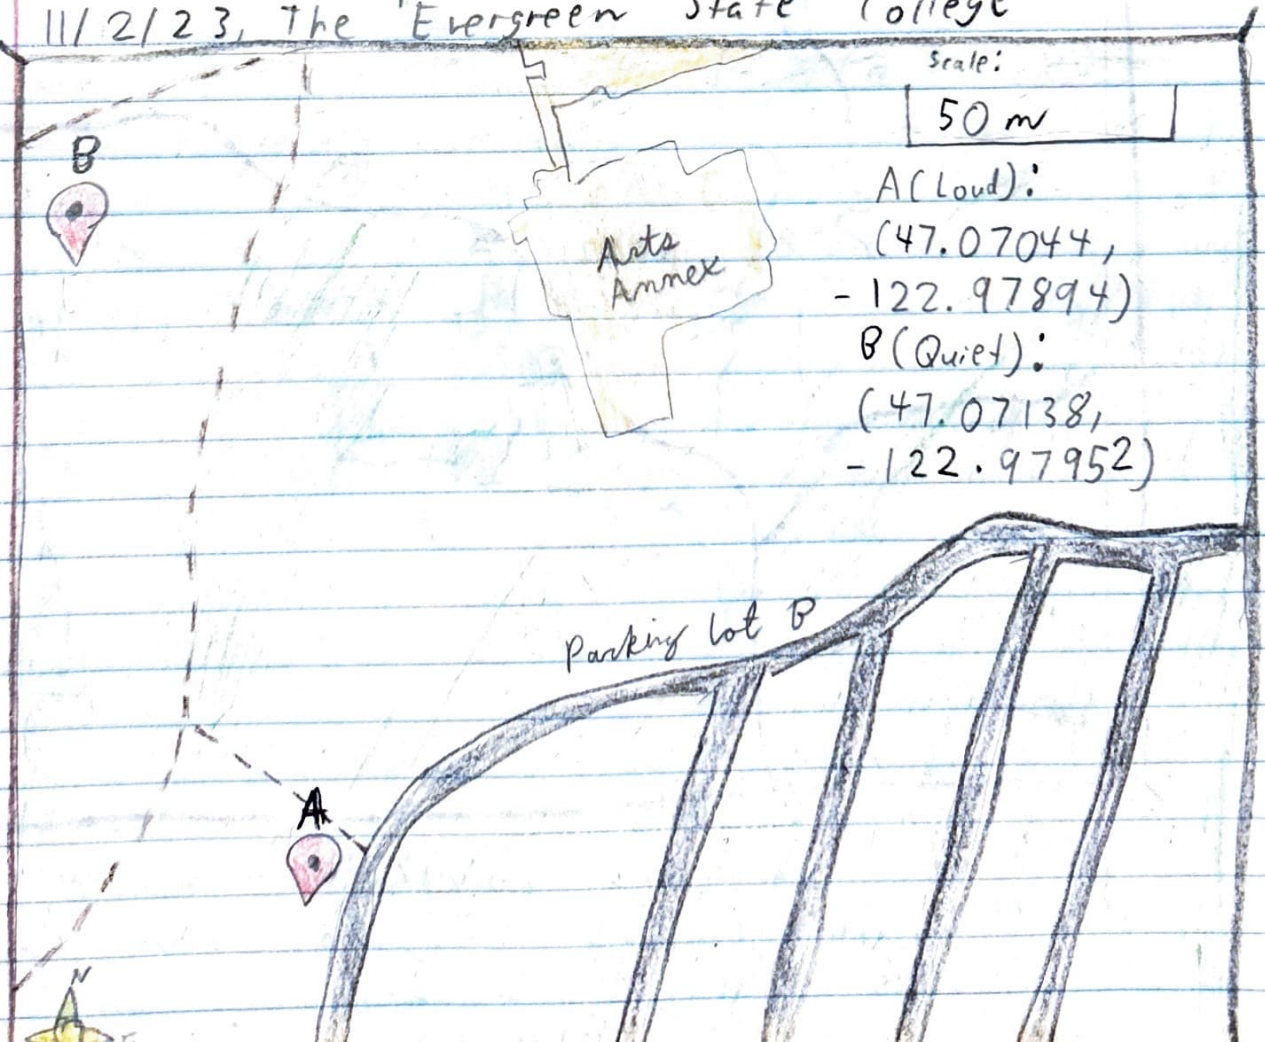 11/2/23, The Evergreen State College
Scale:
50 m
B
A(Loud):
(47.07044,
-122.97894)
B(Quiet):
(47.07138,
-122.97952)
Arts
Annex
Parking lot B
A
N
E